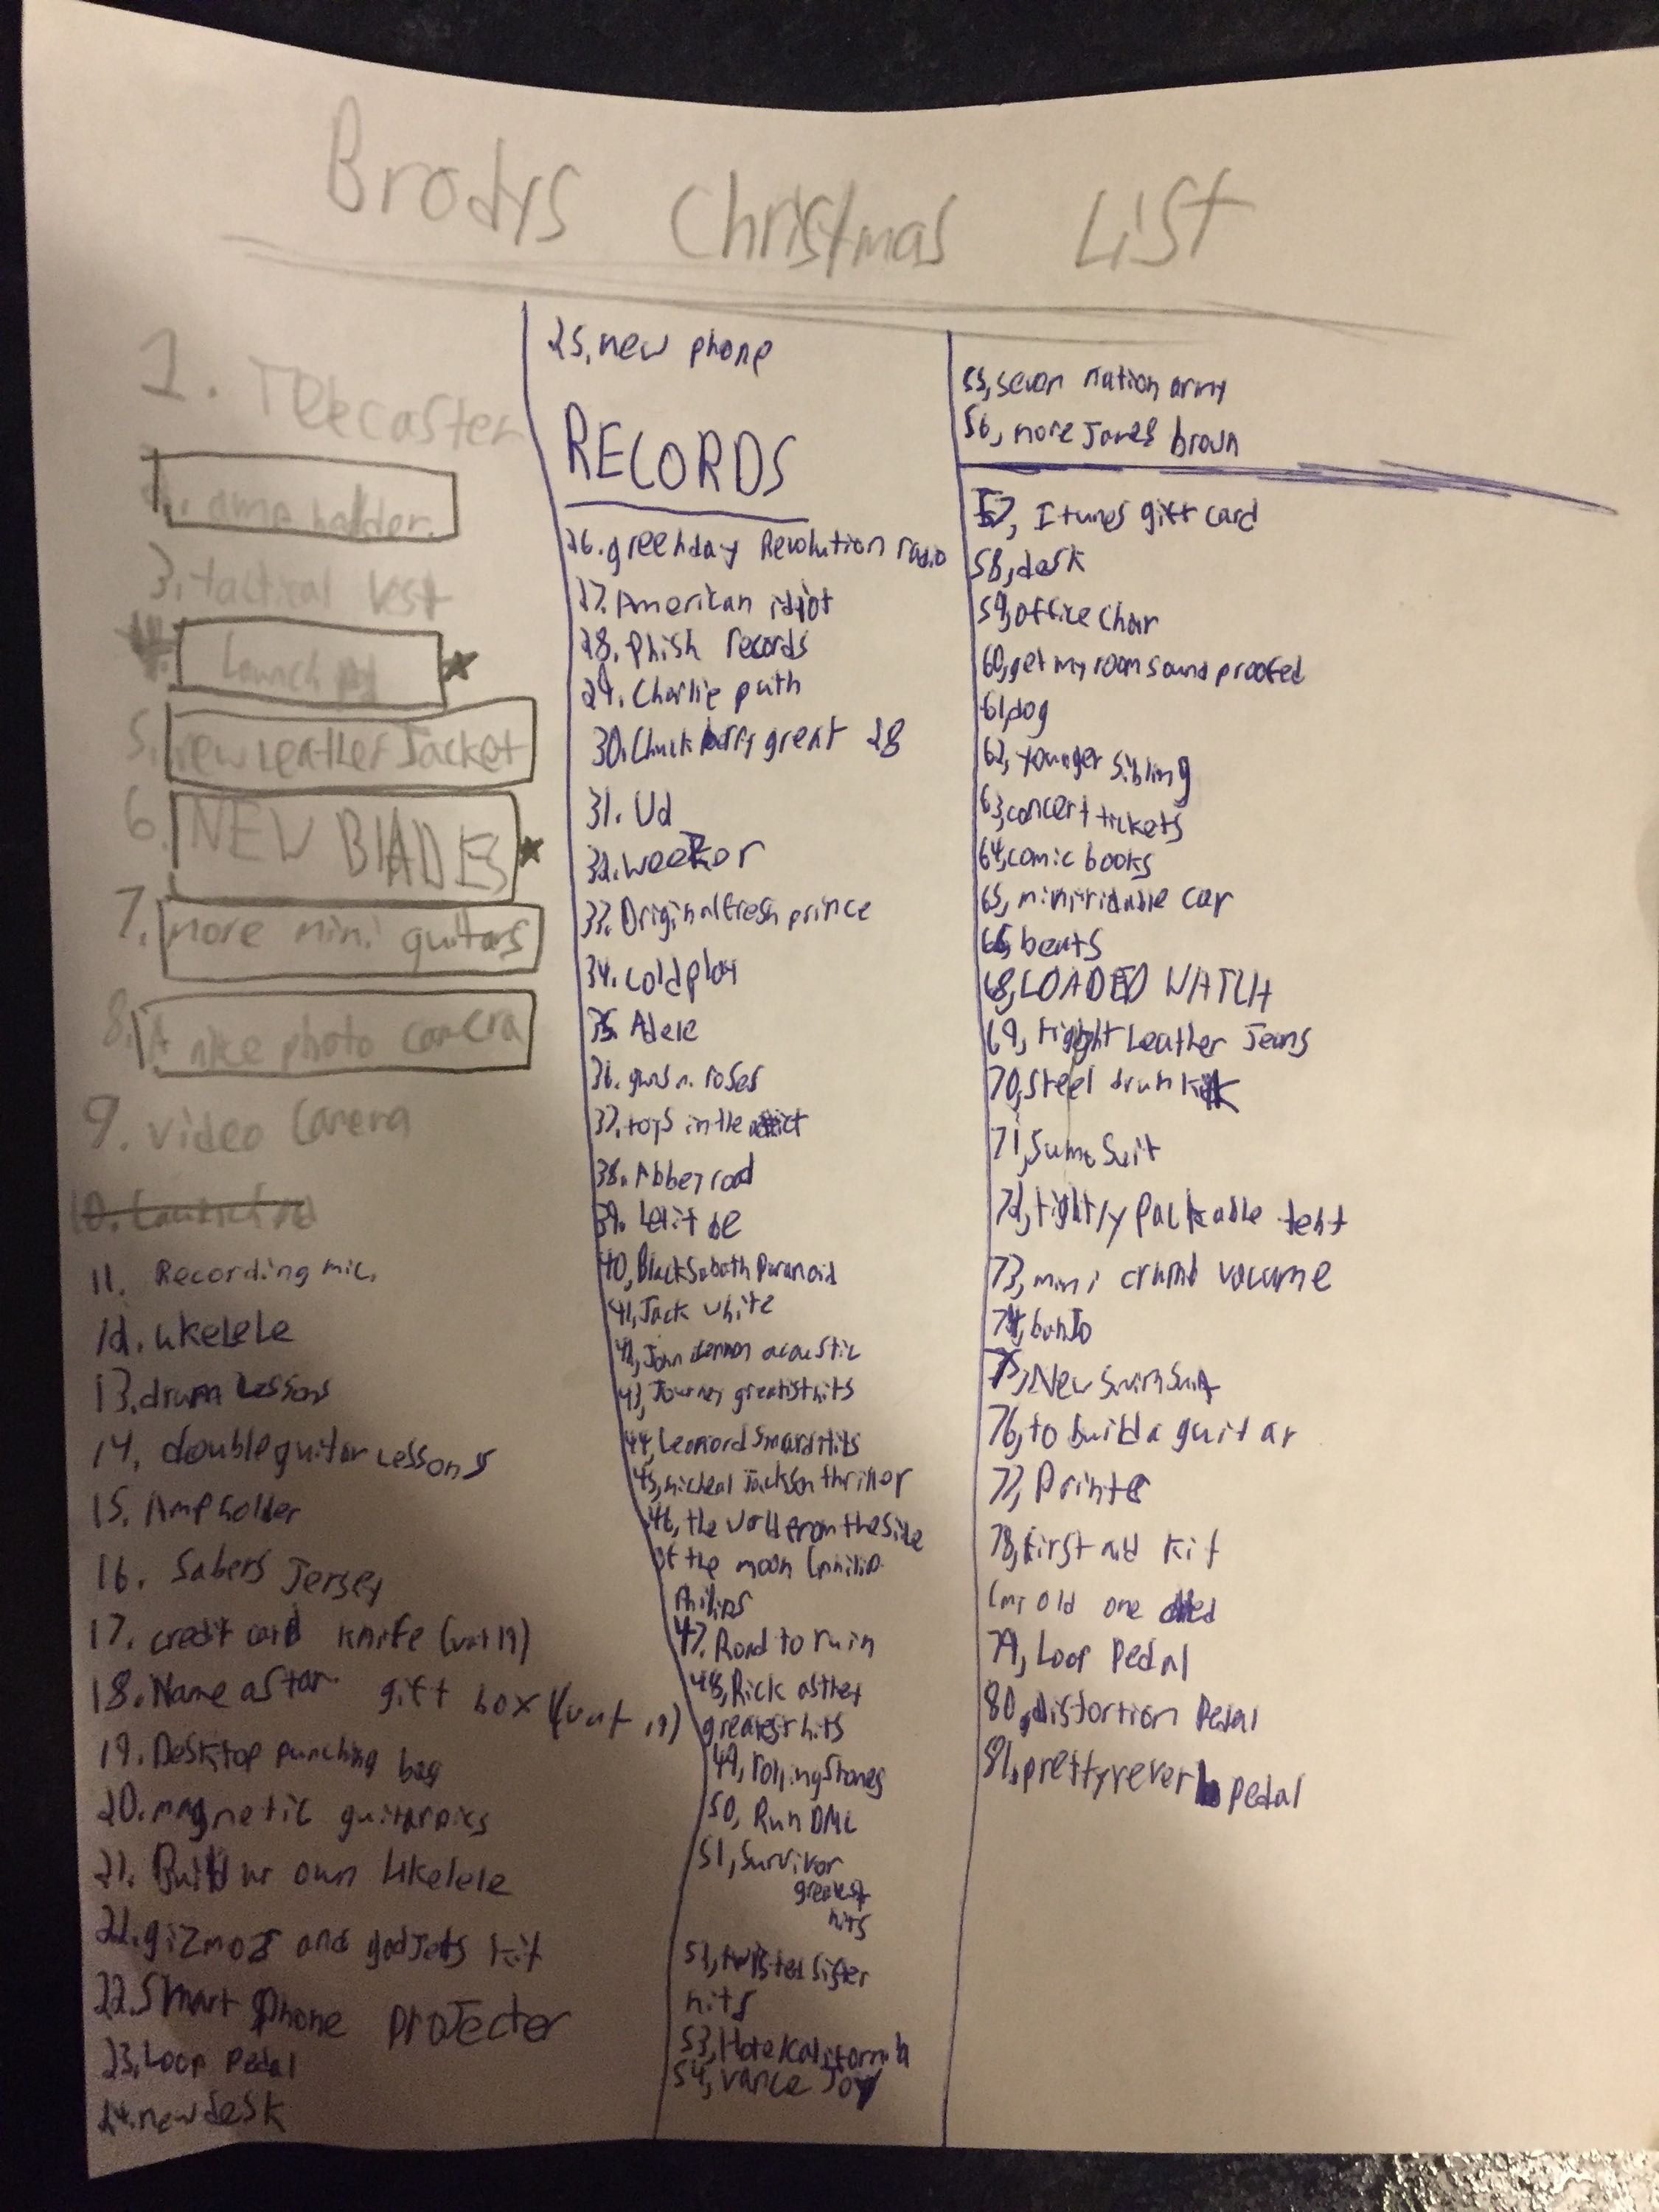 Brodys Christmas List
1. Telecaster
2. amp holder.
3. tactical vest
4. Launch pad
5. new Leather Jacket
6. NEW BLADES
7. more mini guitars
8. A nice photo camera
9. video camera
10. Launch Pad
11. Recording mic.
12. ukelele
13. drum Lessons
14. double guitar Lessons
15. Amp holder
16. Sabers Jersey
17. credit card knife (vat 19)
18. Name a star gift box (vat 19)
19. Desktop punching bag
20. magnetic guitar pics
21. Build ur own Ukelele
22. gizmos and gadJets kit
22. Smart phone proJecter
23. Loop Pedal
24. new desk
25. new phone
RECORDS
26. greenday Revolution radio
27. American idiot
28. Phish records
29. Charlie puth
30. Chuck berry great 28
31. U2
32. weezer
33. Original fresh prince
34. coldplay
35. Adele
36. guns n. roses
37. toys in the attict
38. Abbey road
39. Let it be
40, Black Saboth Paranoid
41, Jack white
42, John Lennon acoustic
43, Journey greatist hits
44, Leonord Smard Hits
45, micheal Jackson thriller
46, the world from the side
of the moon (philip
Philips
47. Road to ruin
48, Rick astley
greatest hits
49, rolling stones
50, Run DMC
51, Survivor
greatest
hits
52, twisted sister
hits
53, Hotel California
54, vance Joy
55, seven nation army
56, more James brown
57, Itunes gift card
58, desk
59, office chair
60, get my room sound proofed
61, dog
62, younger sibling
63, concert tickets
64, comic books
65, mini ridable car
66, beats
68, LOADED WATCH
69, tight Leather Jeans
70, steel drum kit
71, Sumo Suit
72, tightly packable tent
73, mini crumb vacume
74, banJo
75, New swim suit
76, to build a guitar
77, Printer
78, first aid kit
(my old one died
79, Loop Pedal
80, distortion Pedal
81, pretty reverb pedal